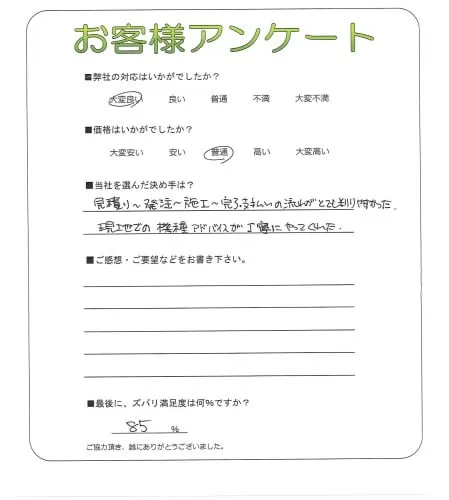 お客様アンケート
■弊社の対応はいかがでしたか?
大変良い 良い 普通 不満 大変不満
■価格はいかがでしたか?
大変安い 安い 普通 高い 大変高い
■当社を選んだ決め手は?
見積り~発注~施工~完了支払いの流れがとても判りやすかった.
現地での機種アドバイスが丁寧にやってくれた.
■ご感想・ご要望などをお書き下さい。
■最後に、ズバリ満足度は何%ですか?
85 %
ご協力頂き、誠にありがとうございました。